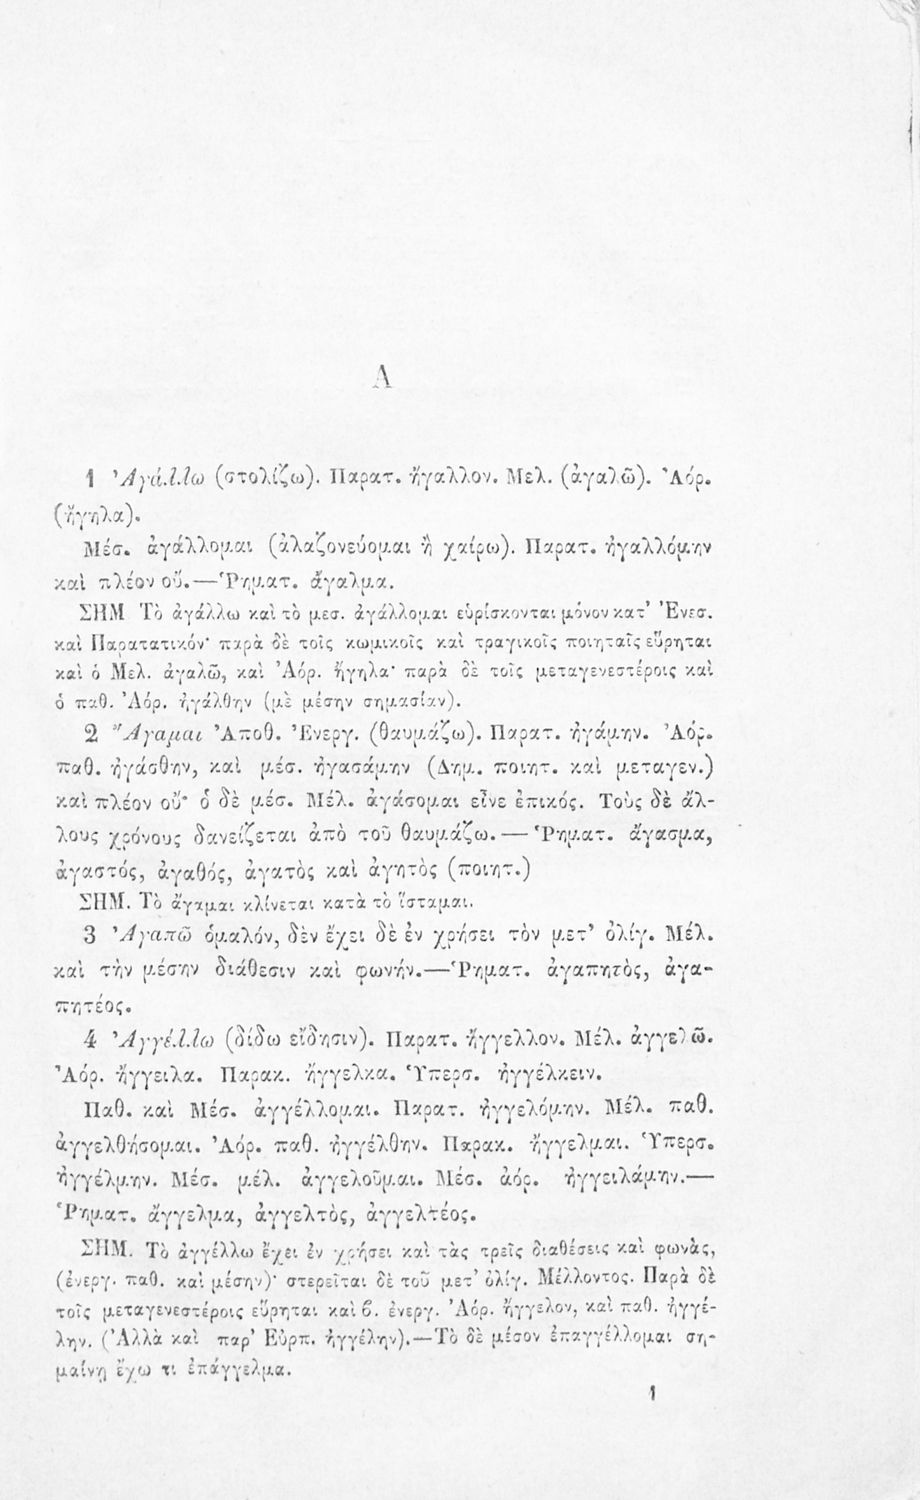 Α
1 Ἀγάλλω (στολίζω). Παρατ. ἤγαλλον. Μελ. (ἀγαλῶ). Ἀόρ.
(ἤγηλα).
Μέσ. ἀγάλλομαι (ἀλαζονεύομαι ἢ χαίρω). Παρατ. ἠγαλλόμην
καὶ πλέον οὔ.—Ῥηματ. ἄγαλμα.
ΣΗΜ Τὸ ἀγάλλω καὶ τὸ μεσ. ἀγάλλομαι εὑρίσκονται μόνον κατ’ Ἐνεσ.
καὶ Παρατατικόν· παρὰ δὲ τοῖς κωμικοῖς καὶ τραγικοῖς ποιηταῖς εὕρηται
καὶ ὁ Μελ. ἀγαλῶ, καὶ Ἀόρ. ἤγηλα· παρὰ δὲ τοῖς μεταγενεστέροις καὶ
ὁ παθ. Ἀόρ. ἠγάλθην (μὲ μέσην σημασίαν).
2 Ἄγαμαι Ἀποθ. Ἐνεργ. (θαυμάζω). Παρατ. ἠγάμην. Ἀόρ.
παθ. ἠγάσθην, καὶ μέσ. ἠγασάμην (Δημ. ποιητ. καὶ μεταγεν.)
καὶ πλέον οὔ· ὁ δὲ μέσ. Μέλ. ἀγάσομαι εἶνε ἐπικός. Τοὺς δὲ ἄλ-
λους χρόνους δανείζεται ἀπὸ τοῦ θαυμάζω.—Ῥηματ. ἄγασμα,
ἀγαστός, ἀγαθός, ἀγατὸς καὶ ἀγητὸς (ποιητ.)
ΣΗΜ. Τὸ ἄγαμαι κλίνεται κατὰ τὸ ἵσταμαι.
3 Ἀγαπῶ ὁμαλόν, δὲν ἔχει δὲ ἐν χρήσει τὸν μετ’ ὀλίγ. Μέλ.
καὶ τὴν μέσην διάθεσιν καὶ φωνήν.—Ῥηματ. ἀγαπητὸς, ἀγα-
πητέος.
4 Ἀγγέλλω (δίδω εἴδησιν). Παρατ. ἤγγελλον. Μέλ. ἀγγελῶ.
Ἀόρ. ἤγγειλα. Παρακ. ἤγγελκα. Ὑπερσ. ἠγγέλκειν.
Παθ. καὶ Μέσ. ἀγγέλλομαι. Παρατ. ἠγγελόμην. Μέλ. παθ.
ἀγγελθήσομαι. Ἀόρ. παθ. ἠγγέλθην. Παρακ. ἤγγελμαι. Ὑπερσ.
ἠγγέλμην. Μέσ. μέλ. ἀγγελοῦμαι. Μέσ. ἀόρ. ἠγγειλάμην.—
Ῥηματ. ἄγγελμα, ἀγγελτὸς, ἀγγελτέος.
ΣΗΜ. Τὸ ἀγγέλλω ἔχει ἐν χρήσει καὶ τὰς τρεῖς διαθέσεις καὶ φωνὰς,
(ἐνεργ. παθ. καὶ μέσην)· στερεῖται δὲ τοῦ μετ’ ὀλίγ. Μέλλοντος. Παρὰ δὲ
τοῖς μεταγενεστέροις εὕρηται καὶ β. ἐνεργ. Ἀόρ. ἤγγελον, καὶ παθ. ἠγγέ-
λην. (Ἀλλὰ καὶ παρ’ Εὐρπ. ἠγγέλην).—Τὸ δὲ μέσον ἐπαγγέλλομαι ση-
μαίνῃ ἔχω τι ἐπάγγελμα.
1